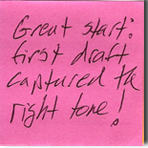 Great start:
first draft
captured the
right tone!